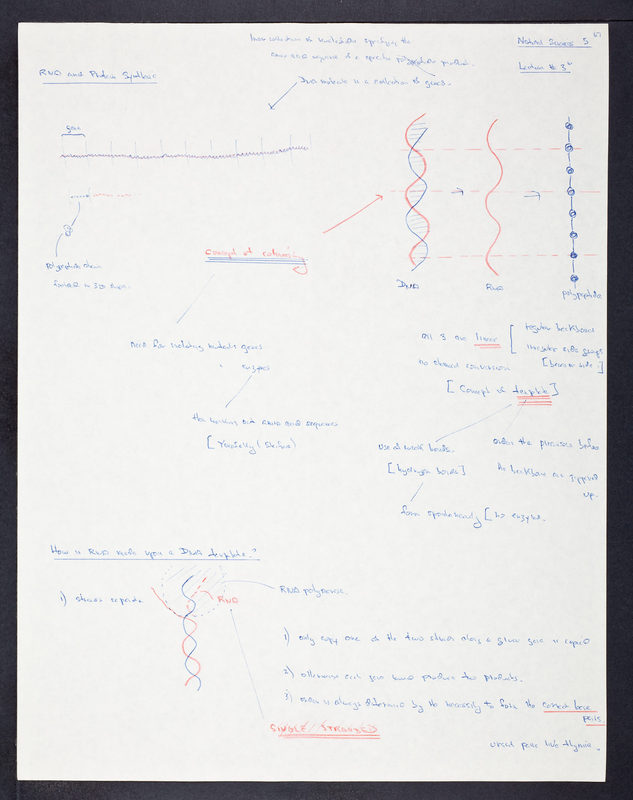 Natural Sciences 5
Lecture # 3
RNA and Protein Synthesis
linear collection of nucleotides specifying the
amino acid sequence of a specific polypeptide product.
DNA molecule is a collection of genes.
gene
Polypeptide chain
folded in 3D shape.
Concept of colinearity
DNA
RNA
polypeptide
need for isolating mutants genes
" enzymes
then working out amino acid sequences
[Yanofsky (
all 3 are linear [ regular backbones
irregular side groups
no chemical conversion [bases or side ]
[Concept of template]
use of weak bonds.
[hydrogen bonds]
form spontaneously [no enzyme.
order the precursors before
the backbones are zippered
up.
How is RNA made upon a DNA template?
1) strands separate
RNA
RNA polymerase.
1) only copy one of the two strands along a given gene is copied
2) otherwise each gene would produce two products.
3) order is always determined by the necessity to form the correct base
pairs.
SINGLE STRANDED
uracil pairs like thymine.